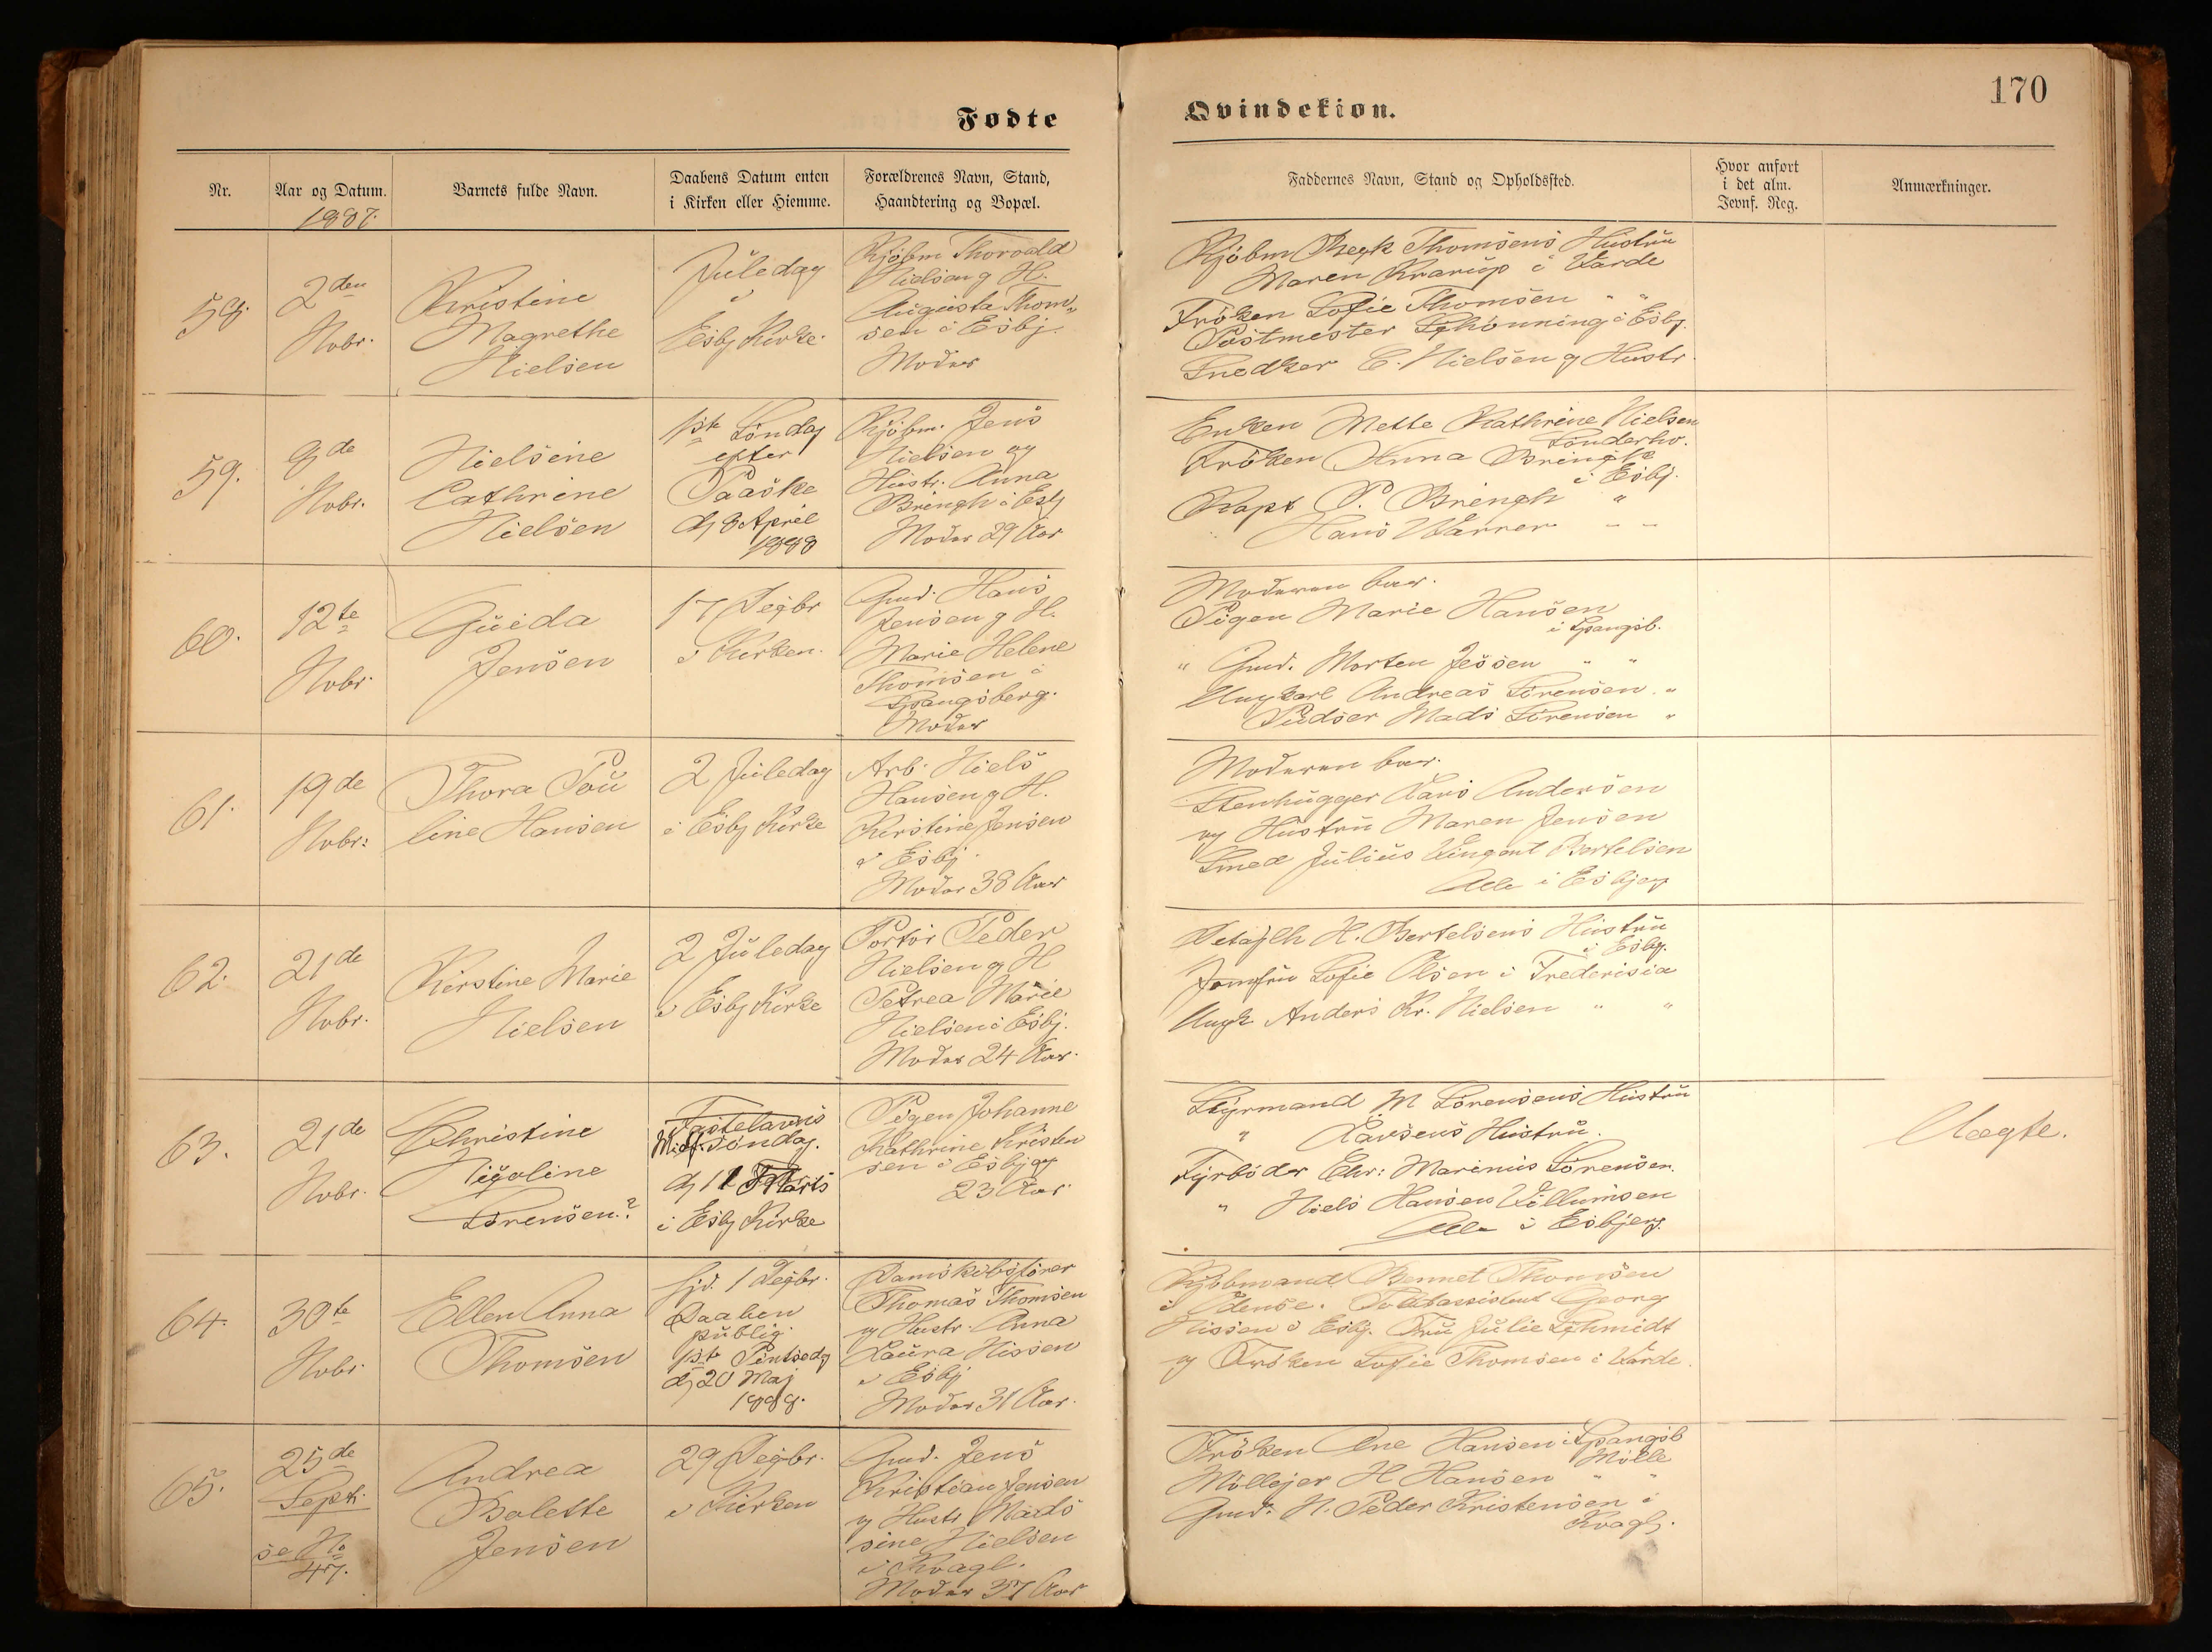 170
Fødte
Qvindekiøn.
Nr.
Aar og Datum.
1887.
Barnets fulde Navn.
Daabens Datum enten
i Kirken eller Hiemme.
Forældrenes Navn, Stand,
Haandtering og Bopæl.
Faddernes Navn, Stand og Opholdssted.
Hvor anført
i det alm.
Jevnf. Reg.
Anmærkninger.
58.
2den
Nobr.
Kristine
Magrethe
Nielsen
Juledag
i
Esbj Kirke.
Kjøbm Thorvald
Nielsen g H.
Augusta Thom-
sen i Esbj.
Moder
Kjøbm Thomsens Hustru
Maren Krarup i Varde
Frøken Sofie Thomsen " "
Postmester Schønning i Esbj.
Snedker C. Nielsen g Hustr.
59.
8de
Nobr.
Nielsine
Cathrine
Nielsen
1ste Søndag
efter
Paaske
d 8 April
1888
Kjøbm. Jens
Nielsen og
Hustr. Anna
Bringh i Esbj
Moder 29 Aar
Enken Mette Kathrine Nielsen
Sønderho.
Frøken Anna Bringh
i Esbj.
Kapt P. Bringh "
Hans Warrer - -
60.
12te
Nobr.
Guida
Jensen
17 Degbr
i Kirken.
Gmd. Hans
Jensen g H.
Marie Helene
Thomsen i
Spangsberg.
Moder
Moderen bar.
Pigen Marie Hansen
i Spangsb.
" Gmd. Morten Jessen " "
Ungkarl Andreas Sørensen "
Pudser Mads Sørensen "
61.
19de
Nobr:
Thora Pou
line Hansen
2 Juledag
i Esbj Kirke
Arb. Niels
Hansen g H.
Kirstine Jensen
i Esbj.
Moder 38 Aar
Moderen bar.
Stenhugger Lars Andersen
og Hustru Maren Jensen
Smed Julius Bertelsen
Alle i Esbjerg
62.
21de
Nobr.
Kirstine Marie
Nielsen
2 Juledag
i Esbj Kirke
Portør Peder
Nielsen g H
Petrea Marie
Nielsen i Esbj.
Moder 24 Aar.
Detajlh H. Bertelsens Hustru
i Esbj.
Jomfru Sofie Olsen i Fredericia
Ungk. Anders Kr. Nielsen " "
63.
21de
Nobr.
Christine
Nigoline
Sørensen.?
Fastelavns
Midf. Søndag.
d 11 Marts
i Esbj Kirke
Pigen Johanne
Kathrine Kristen
sen i Esbjerg
23 Aar
Styrmand M Sørensens Hustru
" Larsens Hustru.
Fyrbøder Chr: Marinus Sørensen.
" Niels Hansen Villumsen
Alle i Esbjerg.
Uægte.
64.
30te
Nobr
Ellen Anna
Thomsen
hjd. 1 Degbr.
Daaben
publig.
1ste Pintsedg
d 20 Maj
1888.
Damskibsfører
Thomas Thomsen
og Hustr. Anna
Laura Nissen
i Esbj
Moder 31 Aar.
Kjøbmand Bennet Thomsen
i Odense. Toldassistent Georg
Nissen i Esbj. Fru Julie Schmidt
og Frøken Sofie Thomsen i Varde.
65.
25de
Sept.
se No
47.
Andrea
Bolette
Jensen
29 Degbr.
i Kirken
Gmd. Jens
Kristian Jensen
og Hustr Mads
sine Nielsen
i Kvagl.
Moder 37 Aar
Frøken Ane Hansen i Spangsb
Mølle
Møllejer H Hansen " "
Gmd. N. Peder Kristensen i
Kvagl.